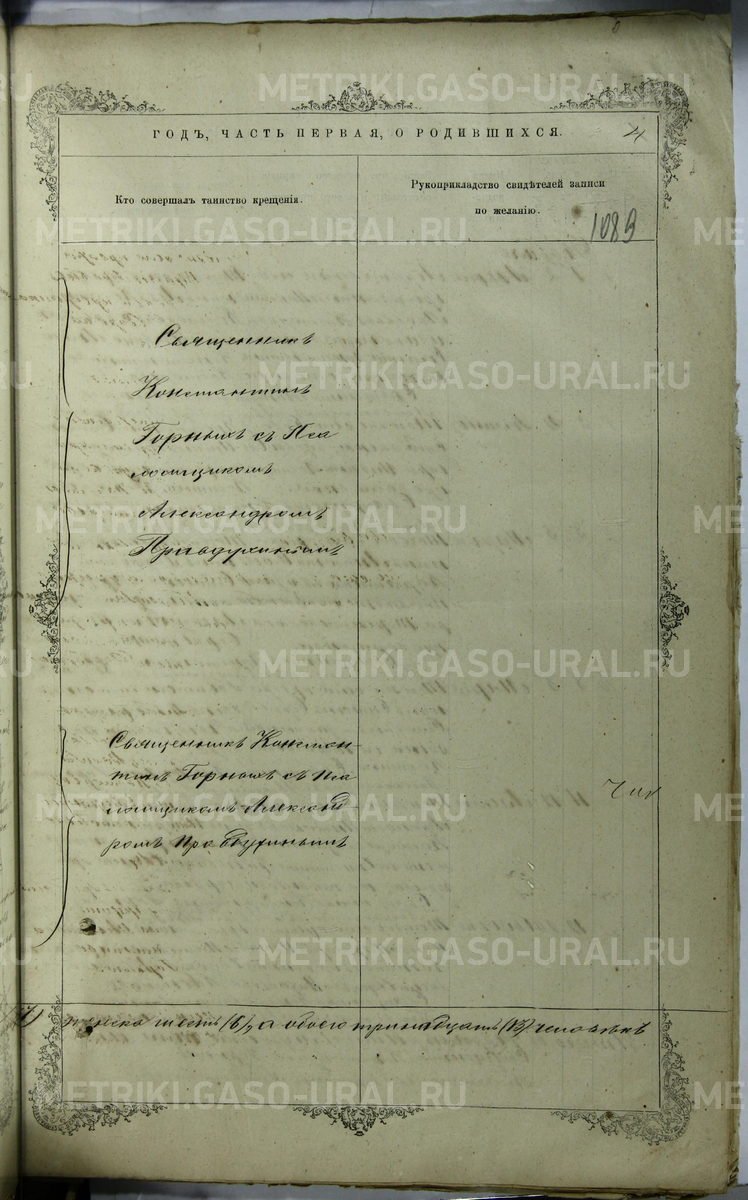 METRIKI.GASO-URAL.RU
ГОДЪ, ЧАСТЬ ПЕРВАЯ, О РОДИВШИХСЯ.
4
Кто совершалъ таинство крещенія.
Рукоприкладство свидѣтелей записи
по желанію.
1089
Священникъ
Константинъ
Горныхъ съ Пса
ломщикомъ
Александромъ
Правдухинымъ
Священникъ Констан-
тинъ Горныхъ съ Пса
ломщикомъ Александ
ромъ Правдухинымъ
женска шесть (6), а обоего тринадцать (13) человѣкъ